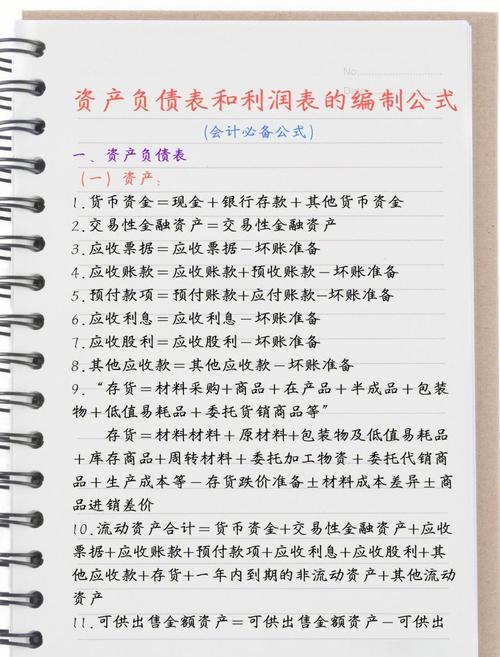 No.
Date
资产负债表和利润表的编制公式
(会计必备公式)
一、资产负债表
(一)资产:
1.货币资金=现金+银行存款+其他货币资金
2.交易性金融资产=交易性金融资产
3.应收票据=应收票据-坏账准备
4.应收账款=应收账款+预收账款-坏账准备
5.预付款项=预付账款+应付账款-坏账准备
6.应收利息=应收利息-坏账准备
7.应收股利=应收股利-坏账准备
8.其他应收款=其他应收款-坏账准备
9.“存货=材料采购+商品+在产品+半成品+包装
物+低值易耗品+委托货销商品等”
存货=材料材料+原材料+包装物及低值易耗品
+库存商品+周转材料+委托加工物资+委托代销商
品+生产成本等-存货跌价准备±材料成本差异±商
品进销差价
10.流动资产合计=货币资金+交易性金融资产+应收
票据+应收账款+预付款项+应收利息+应收股利+其
他应收款+存货+一年内到期的非流动资产+其他流动
资产
11.可供出售金额资产=可供出售金额资产-可供出